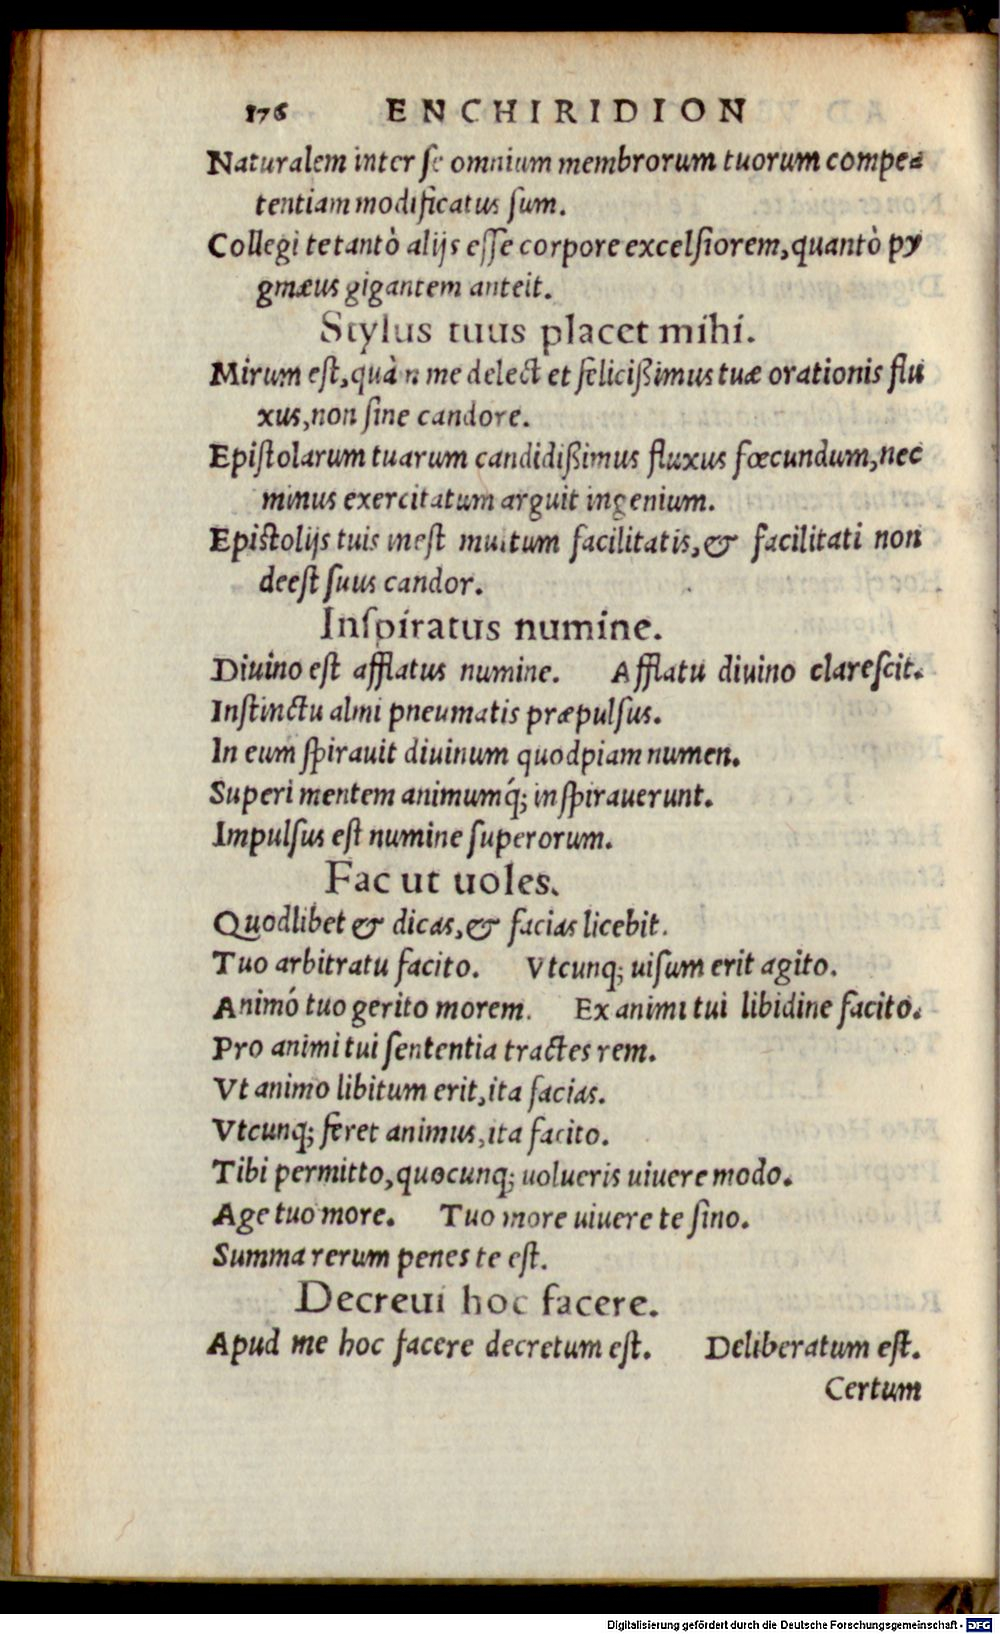 176 ENCHIRIDION
Naturalem inter se omnium membrorum tuorum compe=
tentiam modificatus sum.
Collegi te tantò alijs esse corpore excelsiorem, quantò py
gmæus gigantem anteit.
Stylus tuus placet mihi.
Mirum est, quàm me delectet felicißimus tuæ orationis flu
xus, non sine candore.
Epistolarum tuarum candidißimus fluxus fœcundum, nec
minus exercitatum arguit ingenium.
Epistolijs tuis inest multum facilitatis, & facilitati non
deest suus candor.
Inspiratus numine.
Diuino est afflatus numine. Afflatu diuino clarescit.
Instinctu almi pneumatis præpulsus.
In eum spirauit diuinum quodpiam numen.
Superi mentem animumq́; inspirauerunt.
Impulsus est numine superorum.
Fac ut uoles.
Quodlibet & dicas, & facias licebit.
Tuo arbitratu facito. Vtcunq; uisum erit agito.
Animó tuo gerito morem. Ex animi tui libidine facito.
Pro animi tui sententia tractes rem.
Vt animo libitum erit, ita facias.
Vtcunq; feret animus, ita facito.
Tibi permitto, quocunq; uolueris uiuere modo.
Age tuo more. Tuo more uiuere te sino.
Summa rerum penes te est.
Decreui hoc facere.
Apud me hoc facere decretum est. Deliberatum est.
Certum
Digitalisierung gefördert durch die Deutsche Forschungsgemeinschaft - DFG